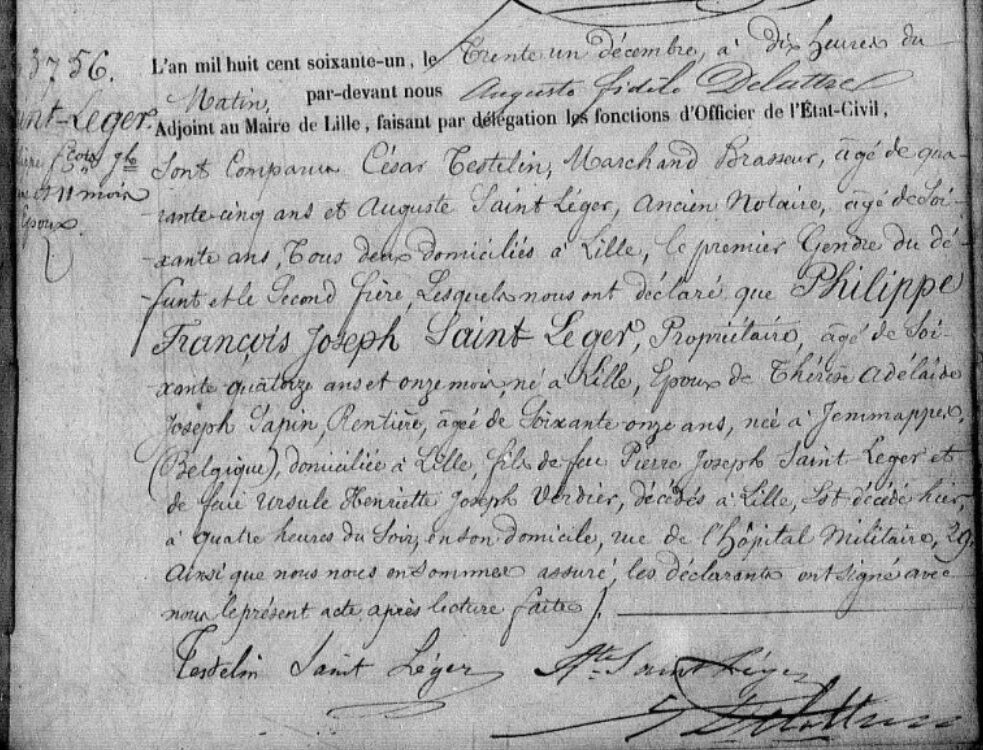 3756.
L'an mil huit cent soixante-un, le Trente un décembre, à dix heures du
Matin, par-devant nous Auguste fidèle Delattre
Adjoint au Maire de Lille, faisant par délégation les fonctions d'Officier de l'État-Civil,
int-Leger.
Sont Comparus César Testelin, Marchand Brasseur, âgé de qua-
rante-cinq ans et Auguste Saint Léger, ancien Notaire, âgé de Soi-
et 11 mois
Epoux.
xante ans, Tous deux domiciliés à Lille, le premier Gendre du dé-
funt et le Second frère, Lesquels nous ont déclaré que Philippe
François Joseph Saint Leger, Propriétaire, âgé de Soi-
xante quatorze ans et onze mois, né à Lille, Epoux de Thérèse Adélaïde
Joseph Sapin, Rentière, âgée de Soixante onze ans, née à Jemmappes,
(Belgique), domiciliée à Lille, fils de feu Pierre Joseph Saint Leger et
de feue Ursule Henriette Joseph Verdier, décédés à Lille, Est décédé hier,
à quatre heures du Soir, en son domicile, rue de l'hôpital Militaire, 29.
Ainsi que nous nous en sommes assuré, les déclarants ont signé avec
nous le présent acte après lecture faite.
Testelin Saint Léger Ate Saint Léger
Delattre